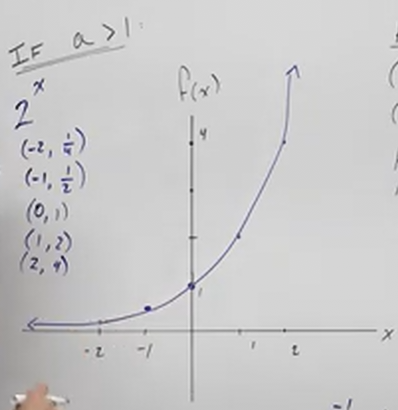 IF a > 1:
2^x
(-2, 1/4)
(-1, 1/2)
(0, 1)
(1, 2)
(2, 4)
f(x)
4
1
x
-2 -1 1 2
-1